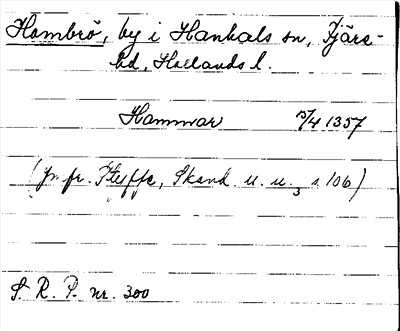 Hambrö, by i Hanhals sn, Fjäre-
hd, Hallands l.
Hammar 15/4 1357
(Jfr. Styffe, Skand. u. u.3 s. 106)
S. R. P. nr. 300